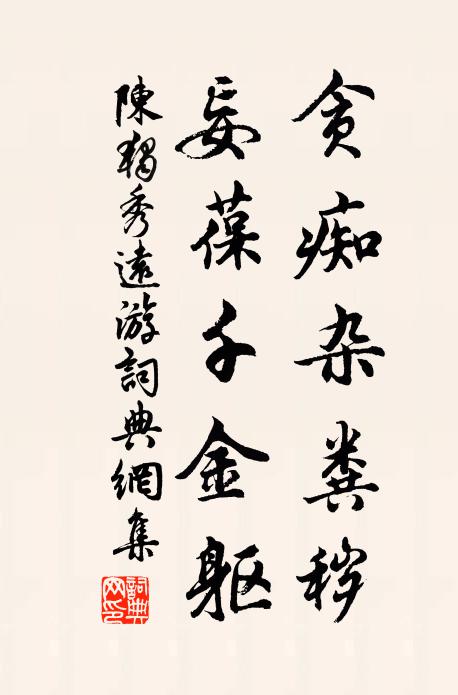 贪痴杂粪秽
妄葆千金躯
陳獨秀遠游詞典網集
詞典网印